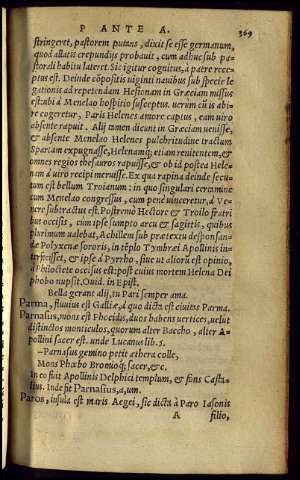 P ANTE A. 369
stringeret, pastorem putans, dixit se esse germanum,
quod allatis crepundijs probauit, cum adhuc sub pa-
storali habitu lateret. Sic igitur cognitus, à patre rece-
ptus est. Deinde cōpositis uiginti nauibus sub specie le
gationis ad repetendam Hesionam in Græciam missus
est: ubi à Menelao hospitio susceptus. uerum cũ is abi-
re cogeretur, Paris Helenes amore captus, eam uiro
absente rapuit. Alij tamen dicunt in Græciam uenisse,
& absente Menelao Helenes pulchritudine tractum
Spartam expugnasse, Helenamq; etiam renitentem, &
omnes regios thesauros rapuisse, & ob id postea Hele-
nam à uiro recipi meruisse. Ex qua rapina deinde secu-
tum est bellum Troianum: in quo singulari certamine
cum Menelao congressus, cum penè uinceretur, à Ve-
nere subtractus est. Postremò Hectore & Troilo fratri
bus occisis, cum ipse sumpto arcu & sagittis, quibus
plurimum ualebat, Achillem sub prætextu desponsan-
dæ Polyxenæ sororis, in tēplo Tymbræi Apollinis in
terfecisset, & ipse à Pyrrho, siue ut aliorũ est opinio,
à Philoctete occisus est: post cuius mortem Helena Dei
phobo nupsit. Ouid. in Epist.
Bella gerant alij, tu Pari semper ama.
Parma, fluuius est Galliæ, à quo dicta est ciuitas Parma.
Parnasus, mons est Phocidis, duos habens uertices, uelut
distinctos monticulos, quorum alter Baccho, alter A-
pollini sacer est. unde Lucanus lib. 5.
–Parnasus gemino petit æthera colle,
Mons Phœbo Bromioq; sacer, &c.
In eo fuit Apollinis Delphici templum, & fons Casta-
lius. Inde fit Parnasius, a, um.
Paros, insula est maris Aegei, sic dicta à Paro Iasonis
A filio,